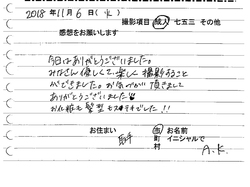 2018年11月6日(火)
撮影項目 成人 七五三 その他
感想をお願いします
今日はありがとうございました。
みなさん優しくて楽しく撮影すること
ができました。お気づかい頂きまして
ありがとうございました!!
お化粧も髪型もステキでした!!
お住まい 市 区 町 村
お名前 イニシャルで A.K.